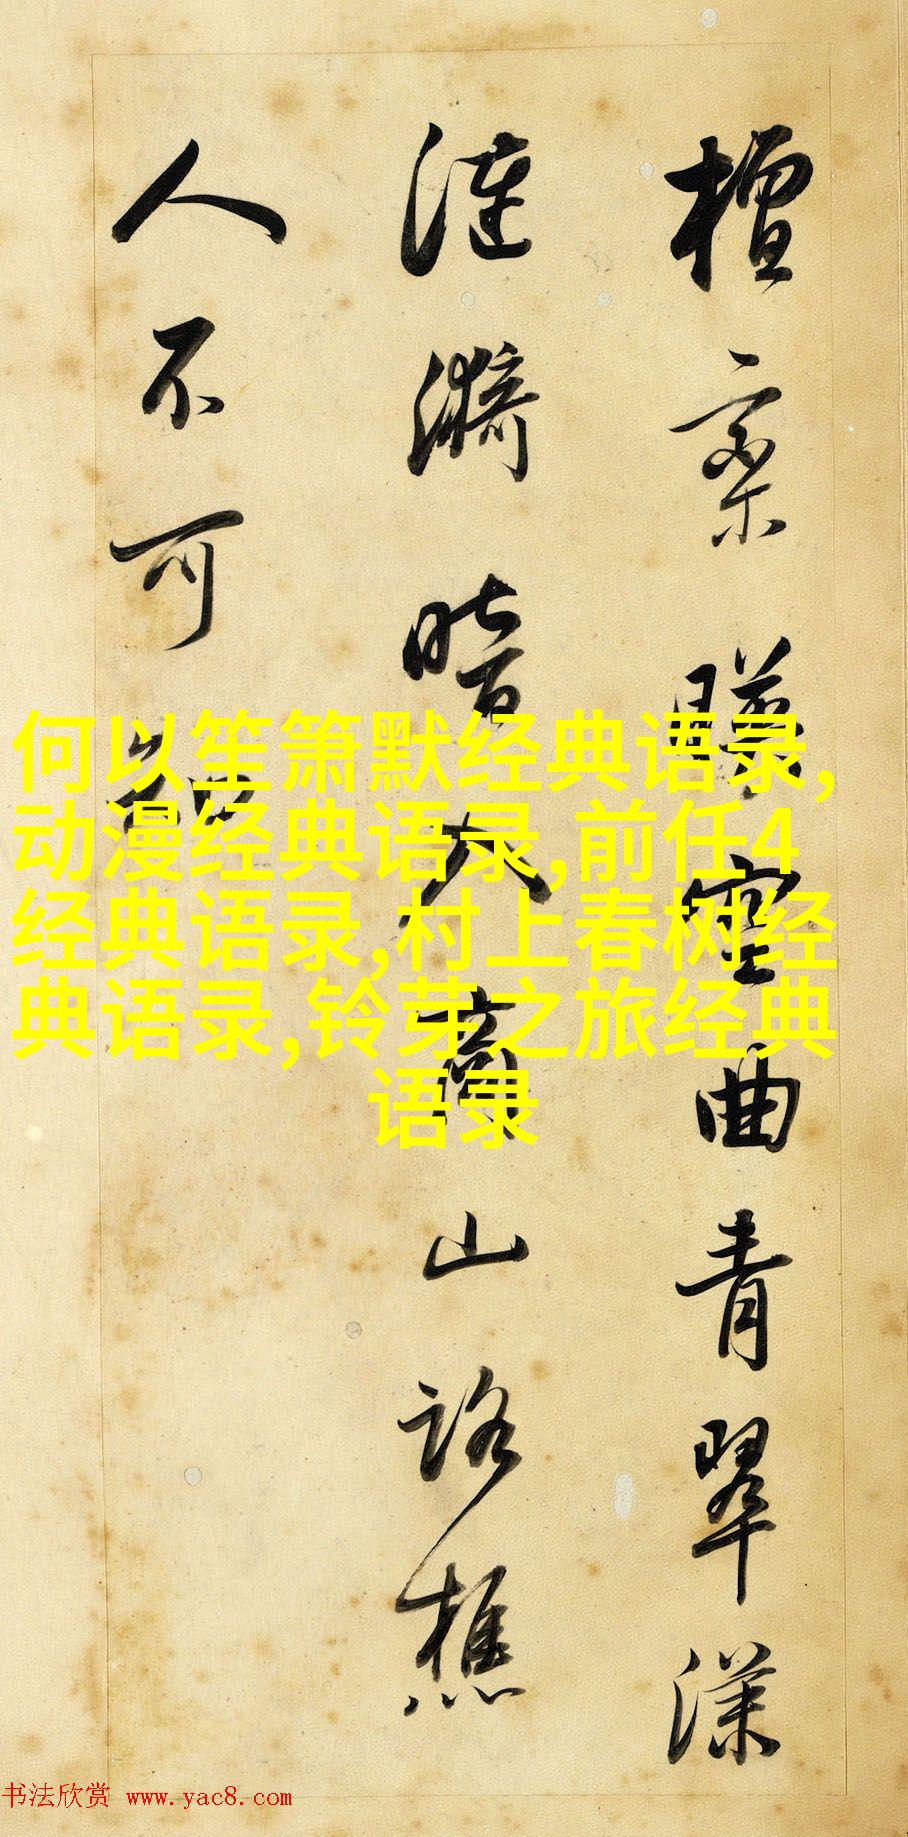 檀欒暎空曲青翠漾
漣漪暗入商山路樵
人不可知
何以笙箫默经典语录,
动漫经典语录,前任4
经典语录,村上春树经
典语录,铃芽之旅经典
语录
书法欣赏 www.yac8.com